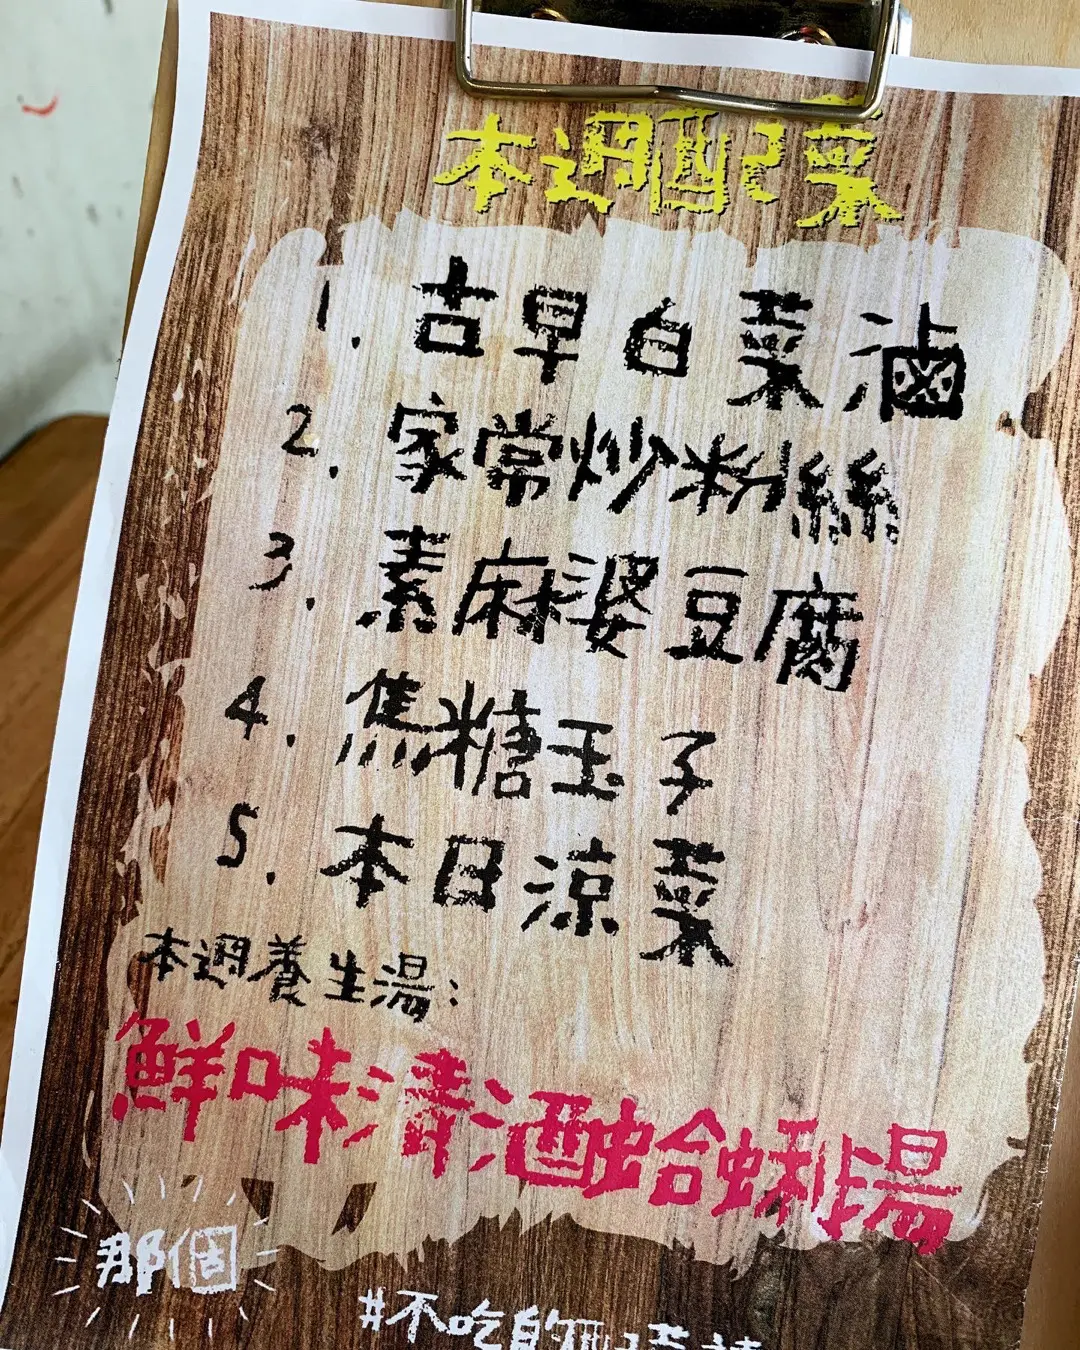 本週配菜
1. 古早白菜滷
2. 家常炒粉絲
3. 素麻婆豆腐
4. 焦糖玉子
5. 本日涼菜
本週養生湯:
鮮味清酒蛤蜊湯
那個
#不吃的配菜請